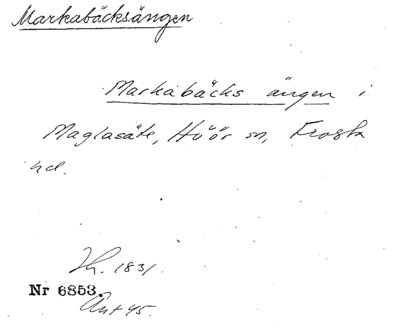 Markabäcksängen
Markabäcks ängen i
Maglasäte, Höör sn, Frosta
hd.
Sk. 1831.
Nr 6853.
Akt 45.